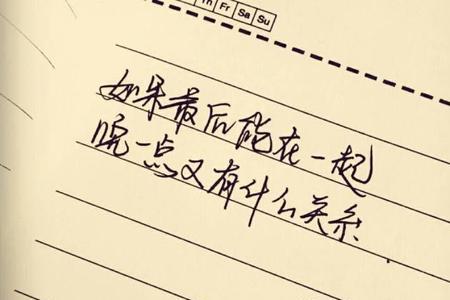 Th Fr Sa Su
如果最后能在一起
晚一点又有什么关系